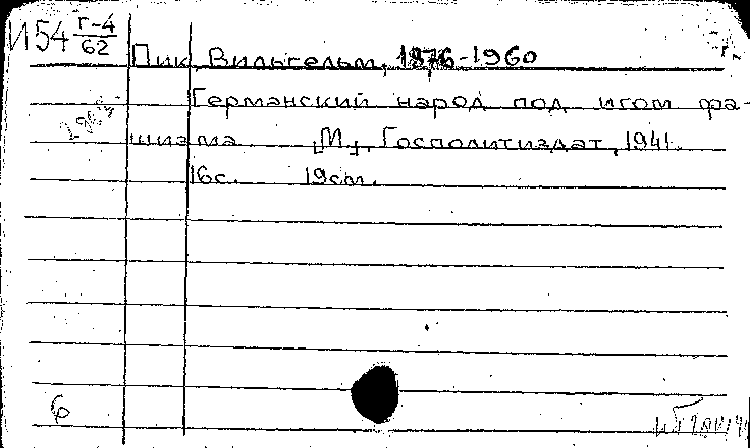 И54 Г-4/62
Пик, Вильгельм, 1876-1960
Германский народ под игом фа-
шизма. [М.], Госполитиздат, 1941.
16с. 19см.
6